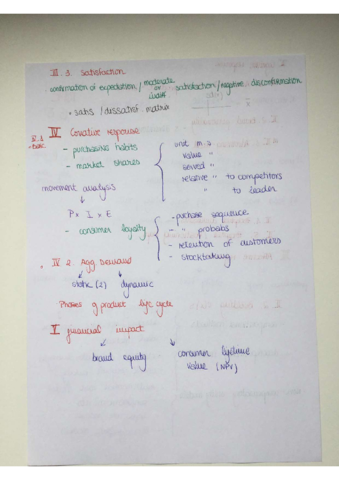 III. 3. Satisfaction
confirmation of expectation / moderate or indiff. satisfaction / negative disconfirmation
• satis / dissatisf matrix
IV Conative response
- purchasing habits
- market shares
unit m. s
value "
served "
relative " to competitors
" to leader
movement analysis
P x I x E
- consumer loyalty
- puchase sequence
- " probabs
- retention of customers
- stocktaking
IV 2. Agg Demand
static (2) dynamic
Phases of product life cycle
V financial impact
brand equity
consumer lifetime value (NPV)